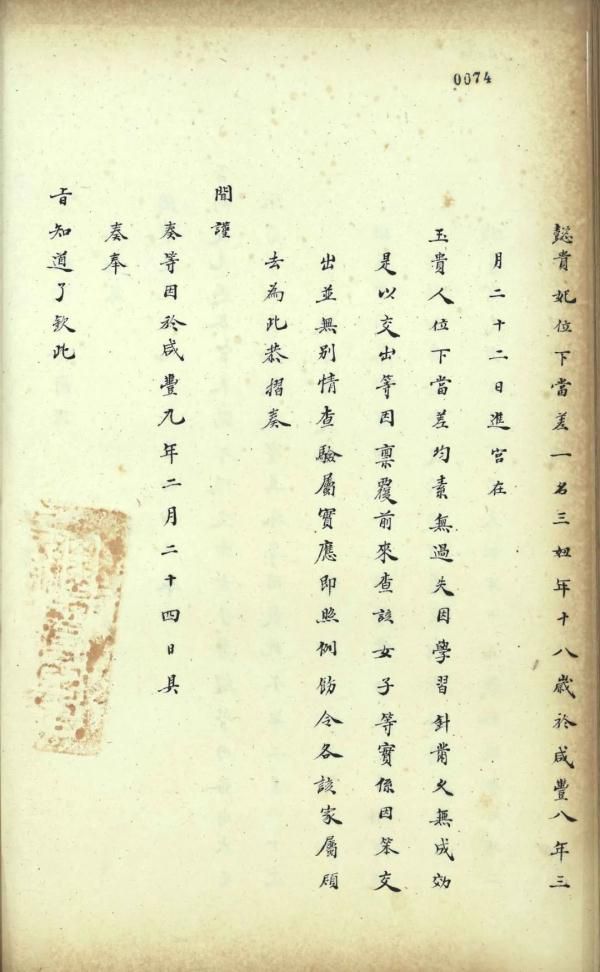 0074
懿貴妃位下當差一名三妞年十八歲於咸豐八年三
月二十二日進宮在
玉貴人位下當差均素無過失因學習針黹久無成効
是以交出等因稟覆前來查該女子等實係因笨交
出並無別情查驗屬實應即照例飭令各該家屬領
去為此恭摺奏
聞謹
奏等因於咸豐九年二月二十四日具
奏奉
旨知道了欽此